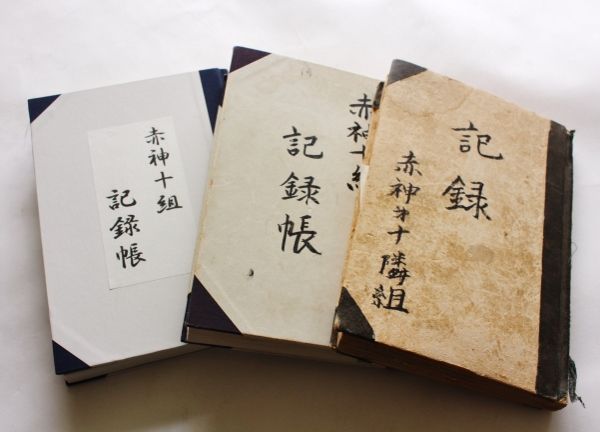 赤神十組
記録帳
赤神十組
記録帳
記録
赤神才十隣組